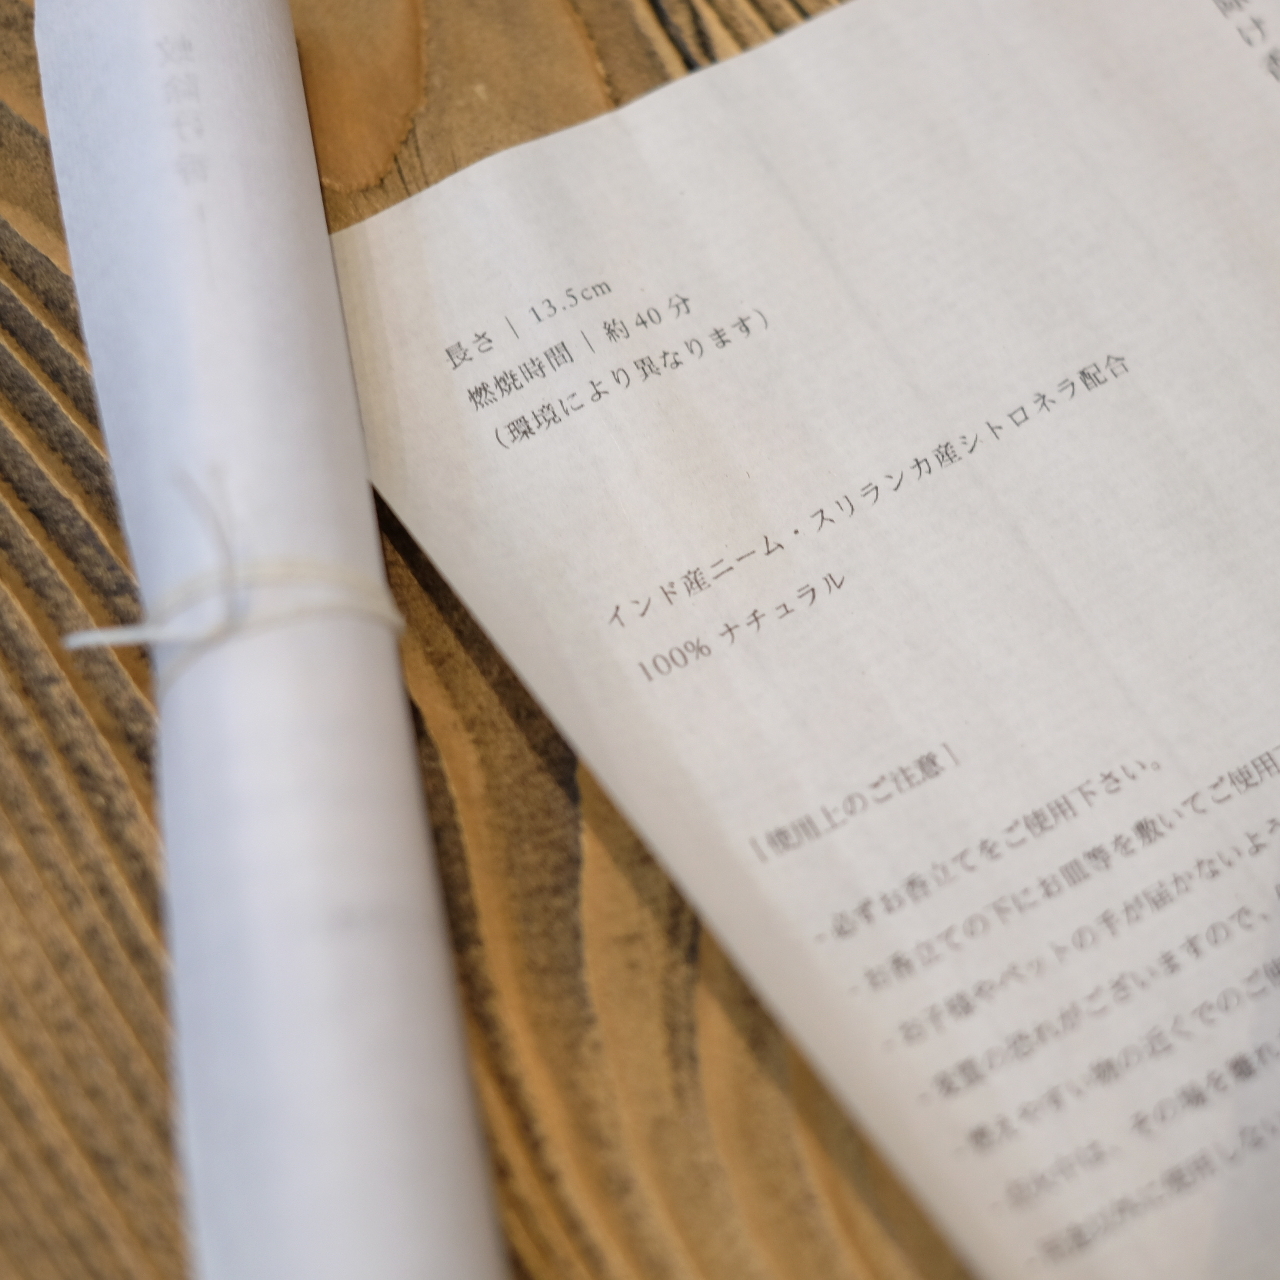 長さ | 13.5cm
燃焼時間 | 約 40 分
（環境により異なります）
インド産ニーム・スリランカ産シトロネラ配合
100% ナチュラル
[ 使用上のご注意 ]
- 必ずお香立てをご使用下さい。
- お香立ての下にお皿等を敷いてご使用
- お子様やペットの手が届かないよう
- 火災の恐れがございますので、
- 燃えやすい物の近くでのご使
は、その場を離れ
ご使用しない
け